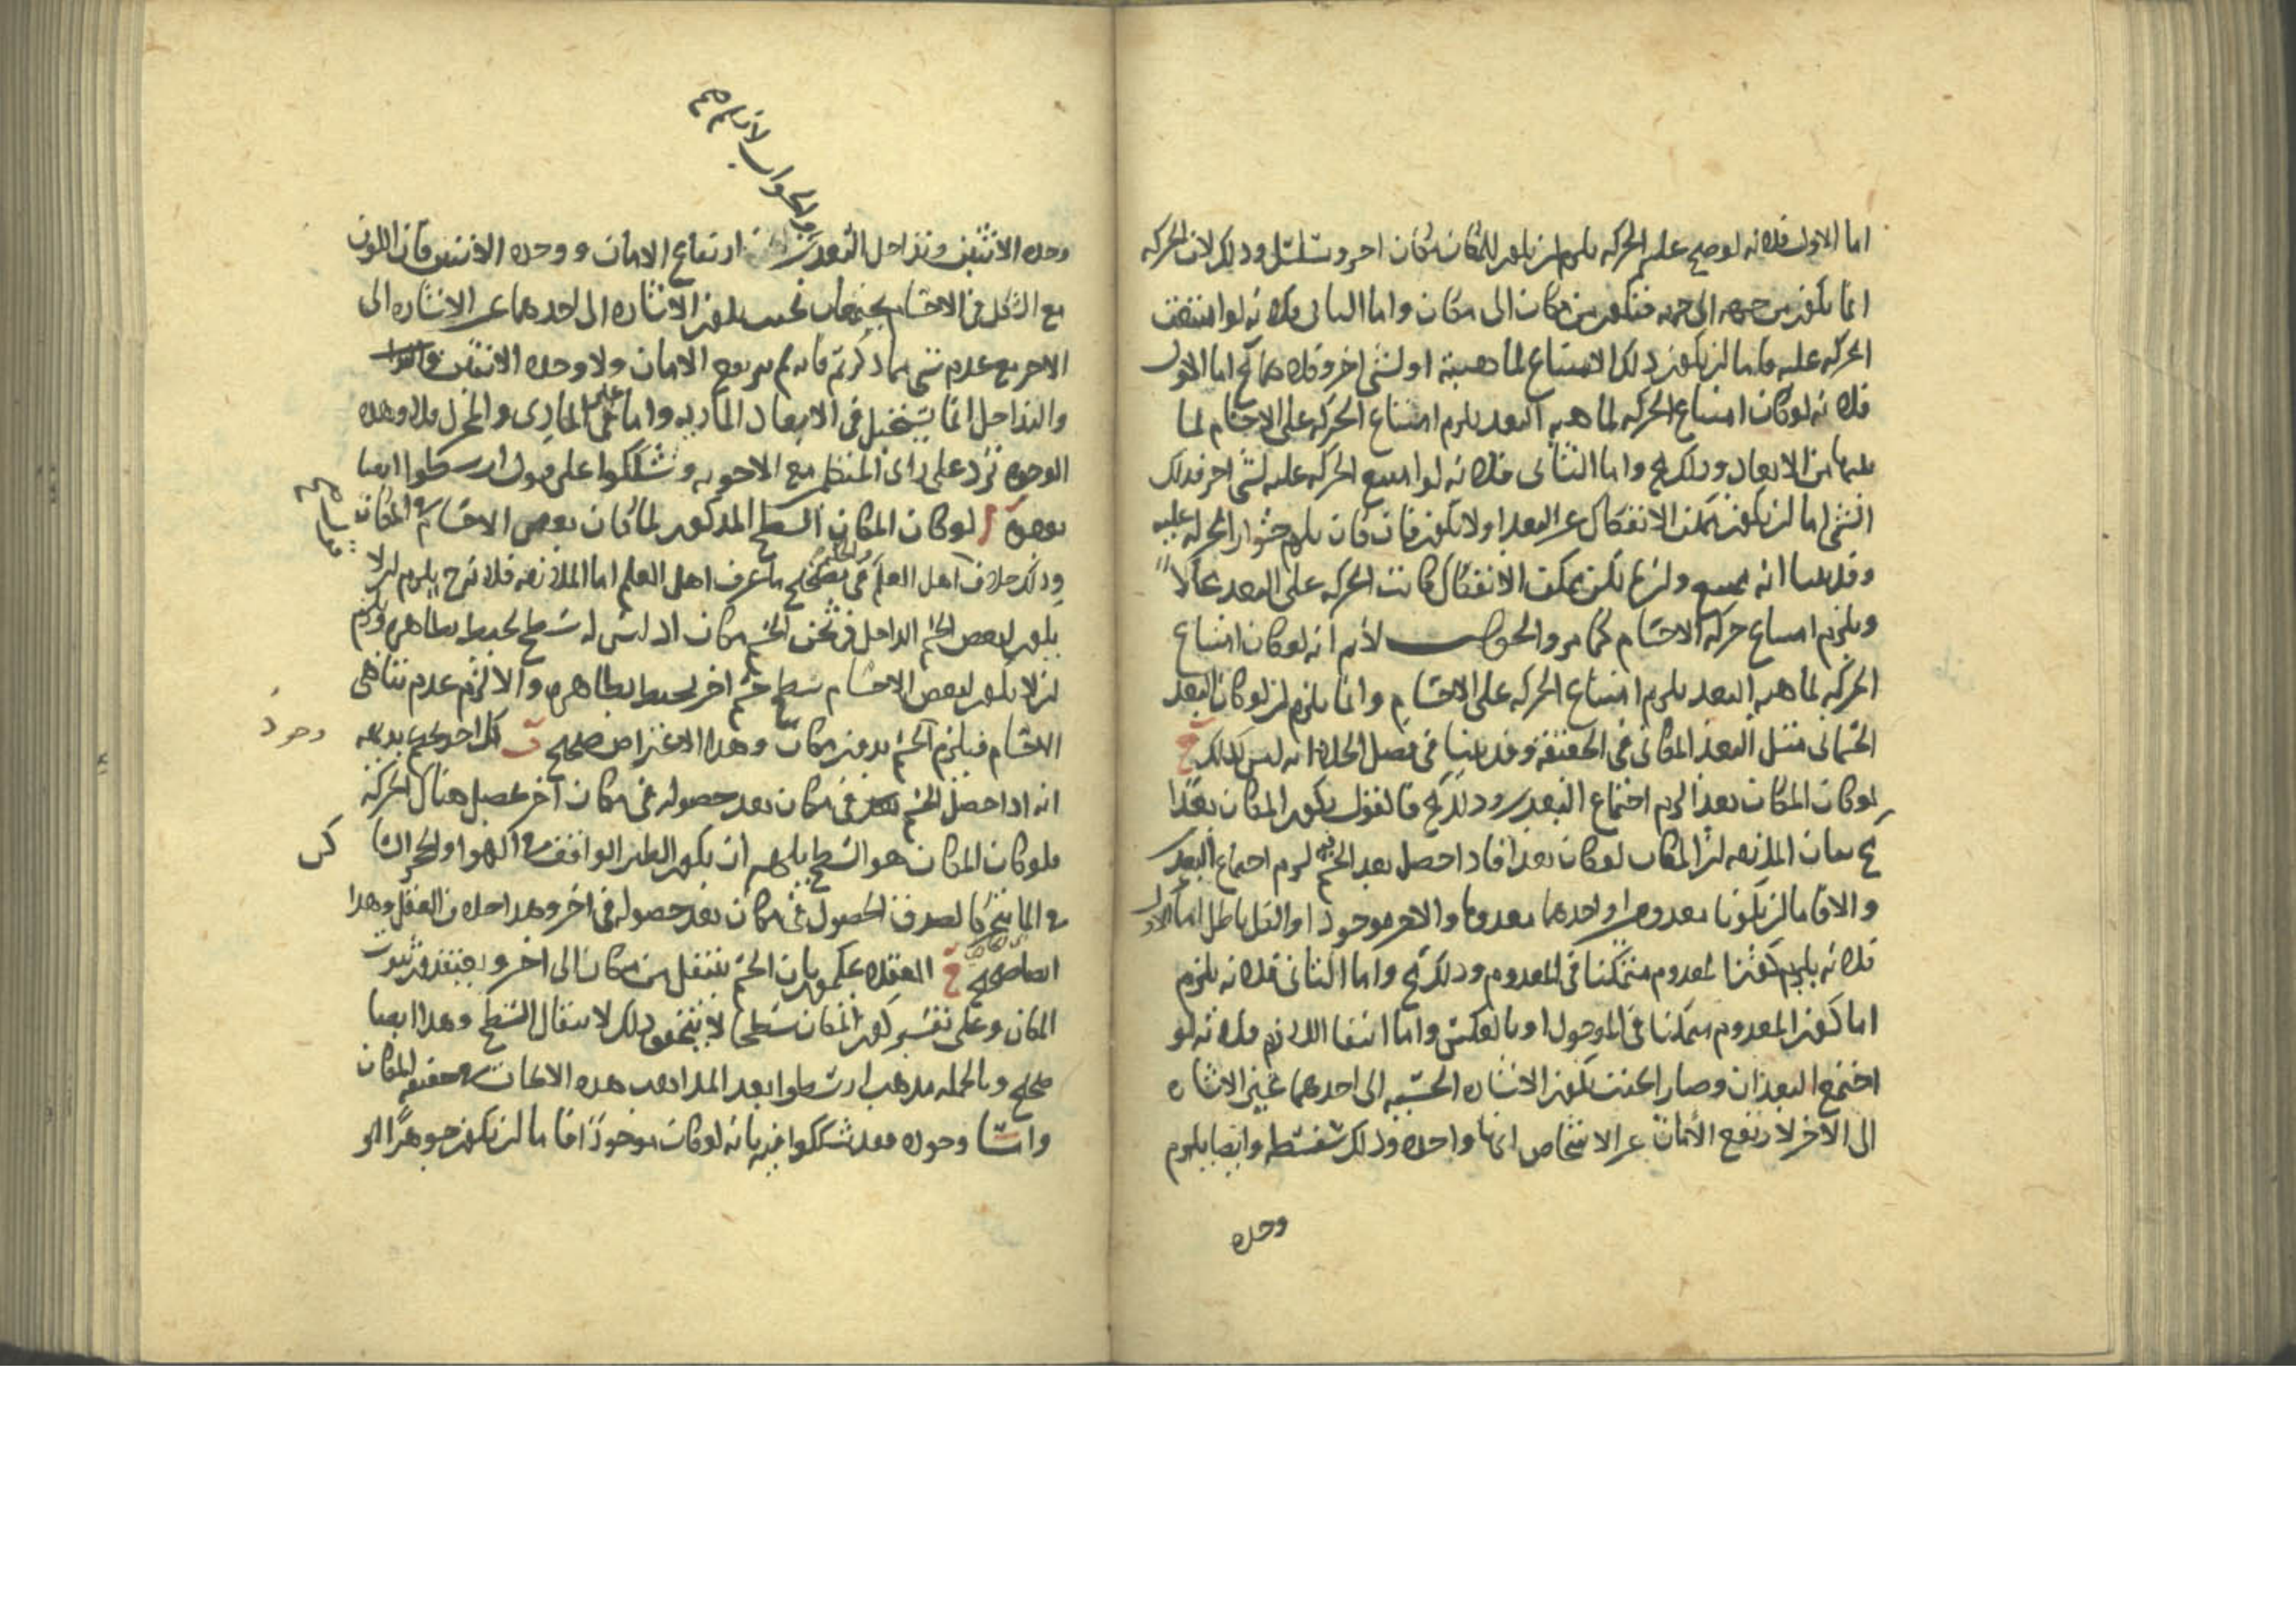 اما الاول فلانه لو صح عليه الحركه يلزم ان يكون للمكان مكان اخر وتسلسل وذلك لان الحركه
انما يكون من جهه الى جهه فيكون من مكان الى مكان واما الثانى فلانه لو امتنعت
الحركه عليه فاما ان يكون ذلك الامتناع لماهيته او لشى اخر وكلاهما مح اما الاول
فلانه لو كان امتناع الحركه لماهيه البعد يلزم امتناع الحركه على الاجسام لما
فيها من الابعاد وذلك مح واما الثانى فلانه لو امتنع الحركه عليه لشى اخر فذلك
الشى اما ان يكون ممكن الانفكاك عن البعد او لا يكون فان كان يلزم جواز الحركه عليه
وقد بينا انه ممتنع وان لم يكن ممكن الانفكاك كانت الحركه على البعد محالا
ويلزم امتناع حركه الاجسام كما مر والجواب لانم انه لو كان امتناع
الحركه لماهيه البعد يلزم امتناع الحركه على الاجسام وانما يلزم ان لو كان البعد
الجسمانى مثل البعد المكانى فى الحقيقة وقد بينا فى فصل الخلاء انه ليس كذلك ج
لو كان المكان بعدا لزم اجتماع البعدين وذلك مح فالقول بكون المكان بعدا
مح بيان الملازمه ان المكان لو كان بعدا فاذا حصل بعد الجسم فيه لزم اجتماع البعدين
والا فاما ان يكونا معدومين او احدهما معدوما والاخر موجودا والكل باطل اما الاول
فلانه يلزم كون المعدوم متمكنا فى المعدوم وذلك مح واما الثانى فلانه يلزم
اما كون المعدوم متمكنا فى الموجود او بالعكس واما انتفا اللازم فلانه لو
اجتمع البعدان وصارا بحيث يكون الاشاره الحسيه الى احدهما عين الاشاره
الى الاخر لارتفع الامان عن الاشخاص انها واحده وذلك سفسطه وايضا يلزم
وحده
وحده الاثنين وتداخل البعدين ارتفاع الامان ووحده الاثنين فان اللون
والجواب لانم صح
مع الشكل فى الاجسام يجتمعان بحيث يكون الاشاره الى احدهما عين الاشاره الى
الاخر مع عدم شى مما ذكرتم فانه لم يرتفع الامان ولا وحده الاثنين
والتداخل انما يستحيل فى الابعاد الماديه واما غير المادى والمجرد فلا وهذه
الوجوه ترد على راى المتكلم مع الاجوبه وشككوا على قول ارسطوا ايضا
بوجوه ا لو كان المكان السطح المذكور لما كان بعض الاجسام فى المكان
وذلك خلاف اهل العلم ما عرف اهل العلم اما الملازمه فلانه ح يلزم ان لا
يكون لبعض الجسم الداخل فى ثخن الجسم مكان اذ ليس له سطح محيط بظاهره ويلزم
ان لا يكون لبعض الاجسام سطح جسم اخر محيط بظاهره والا لزم عدم تناهى
الاجسام فيلزم الجسم بدون مكان وهذا الاعتراض صحيح ب كل احد يحكم بديهه
انه اذا حصل الجسم فى مكان بعد حصوله فى مكان آخر يحصل هناك الحركه
فلو كان المكان هو السطح يلزم ان يكون الطير الواقف فى الهوا والحجر الساكن
فى الما متحركا لصدق الحصول فى مكان بعد حصوله فى اخر وهذا خلاف العقل وهذا
ايضا صحيح ج العقلا يحكمون بان الجسم ينتقل من مكان الى اخر ويعتقدون ثبوت
المكان وعلى تقدير كون المكان سطحا لا يتحقق ذلك لانتقال السطح وهذا ايضا
صحيح وبالجمله مذهب ارسطوا بعد المذاهب هذه الابحاث فى حقيقه المكان
واما وجوده فقد شككوا فيه بانه لو كان موجودا فاما ان يكون جوهرا او